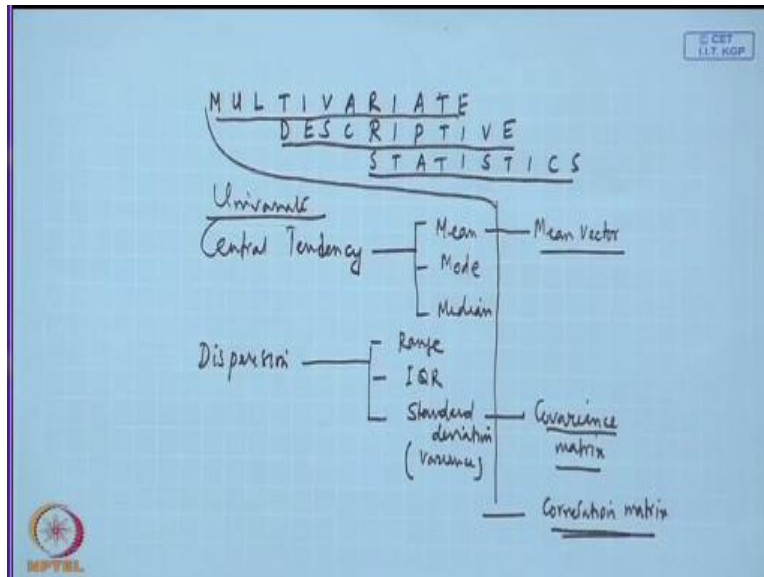 © CET
I.I.T. KGP
MULTIVARIATE
DESCRIPTIVE
STATISTICS
Univariate
Central Tendency
Mean
Mean Vector
Mode
Median
Dispersion
Range
IQR
Standard
deviation
(Variance)
Covariance
matrix
Correlation matrix
NPTEL